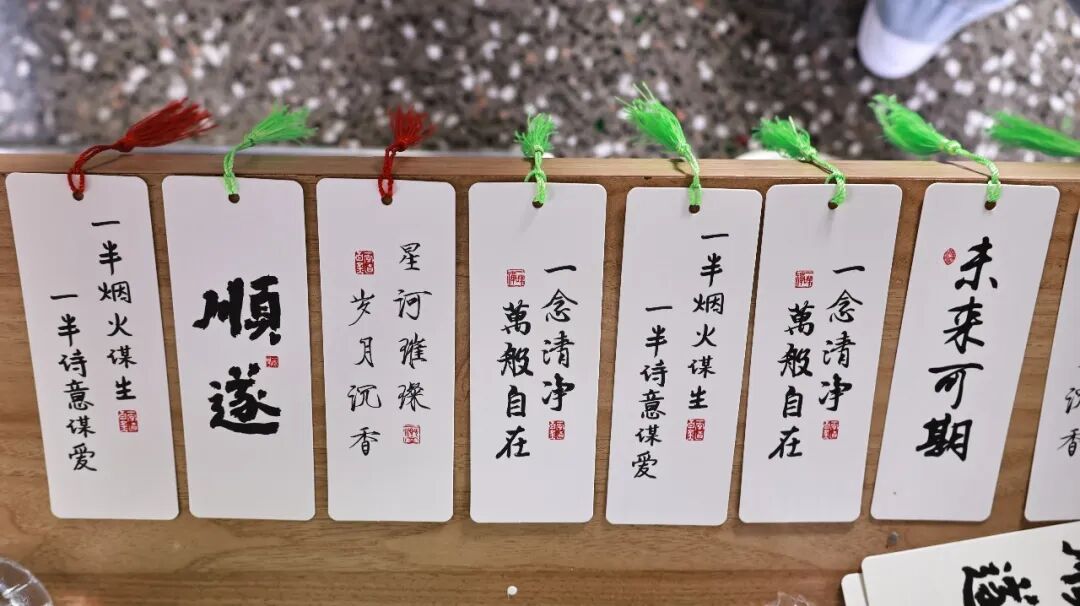 一半烟火谋生
一半诗意谋爱
順遂
星河璀璨
岁月沉香
一念清净
萬般自在
一半烟火谋生
一半诗意谋爱
一念清净
萬般自在
未来可期
沉香
遂